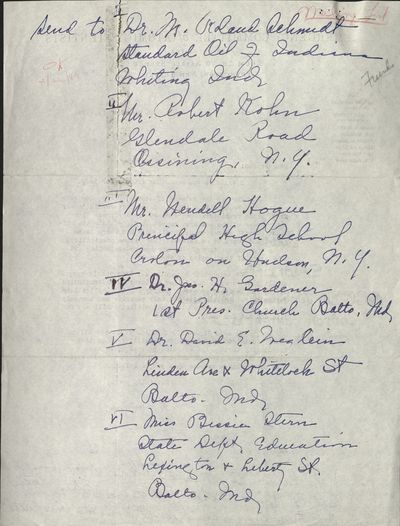 Mailing List
Send to I Dr. M. Roland Schmidt
Standard Oil of Indiana
Whiting Ind
OK
II Mr. Robert Kohn
Glendale Road
Ossining, N.Y.
III Mr. Wendell Hogue
Principal High School
Croton on Hudson, N.Y.
IV Dr. Jas. H. Gardener
1st Pres. Church Balto. Md
V Dr. David E. Weglein
Linden Ave & Whitelock St
Balto. Md
VI Miss Bessie Stern
State Dept Education
Lexington & Liberty St.
Balto. Md